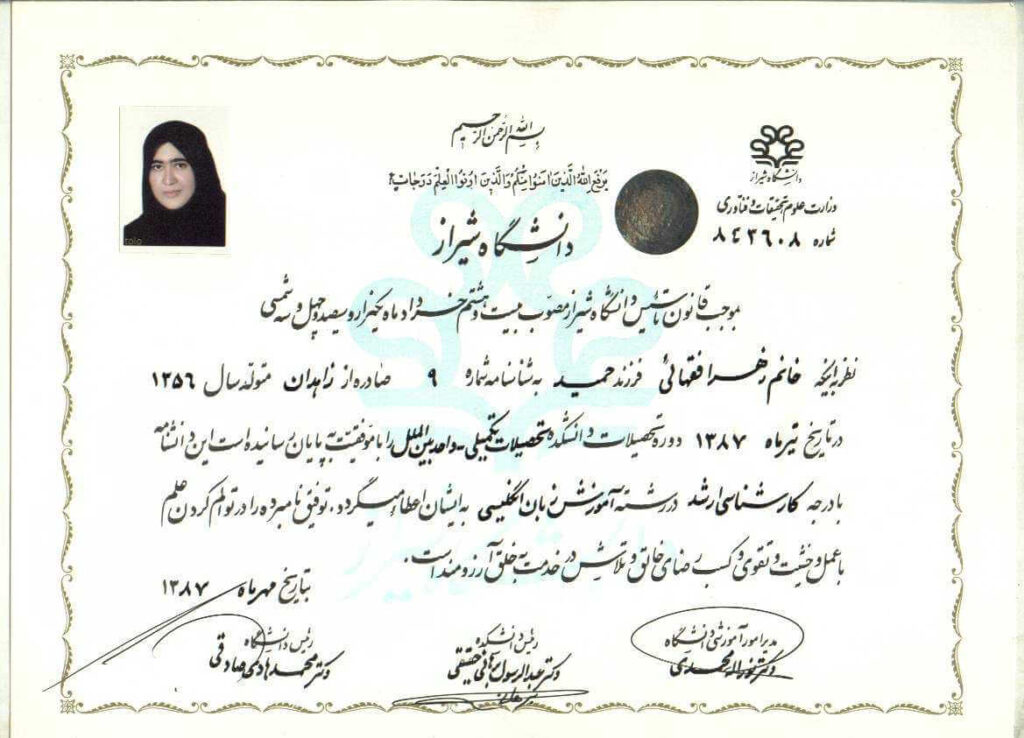 بسم الله الرحمن الرحیم
یرفع الله الذین امنوا منکم والذین اوتوا العلم درجات
دانشگاه شیراز
دانشگاه شیراز
وزارت علوم، تحقیقات و فناوری
شماره ۸۴۳۶۰۸
بموجب قانون تاسیس دانشگاه شیراز مصوب بیست و هشتم خرداد ماه یکهزار و سیصد و چهل و سه شمسی
نظر به اینکه خانم زهرا فقهائی فرزند حمید به شناسنامه شماره ۹ صادره از زاهدان متولد سال ۱۳۵۶
در تاریخ تیرماه ۱۳۸۷ دوره تحصیلات دانشکده تحصیلات تکمیلی - واحد بین الملل را با موفقیت به پایان رسانیده است این دانشنامه
با درجه کارشناسی ارشد در رشته آموزش زبان انگلیسی به ایشان اعطا میگردد. توفیق نامبرده را در توام کردن علم
با عمل و خشیت و تقوی و کسب رضای خالق و تلاش در خدمت به خلق آرزومند است.
بتاریخ مهرماه ۱۳۸۷
مدیر امور آموزشی دانشگاه
دکتر نوراله محمدی
رئیس دانشکده
دکتر عبدالرسول برهانی حقیقی
رئیس دانشگاه
دکتر محمدهادی صادقی